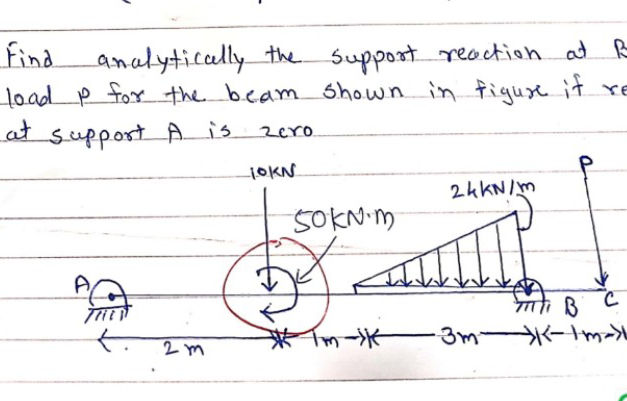 Find analytically the support reaction at B
load P for the beam shown in figure if re
at support A is zero
10KN
P
24KN/m
50KN·m
A
B C
2m 1m 3m 1m